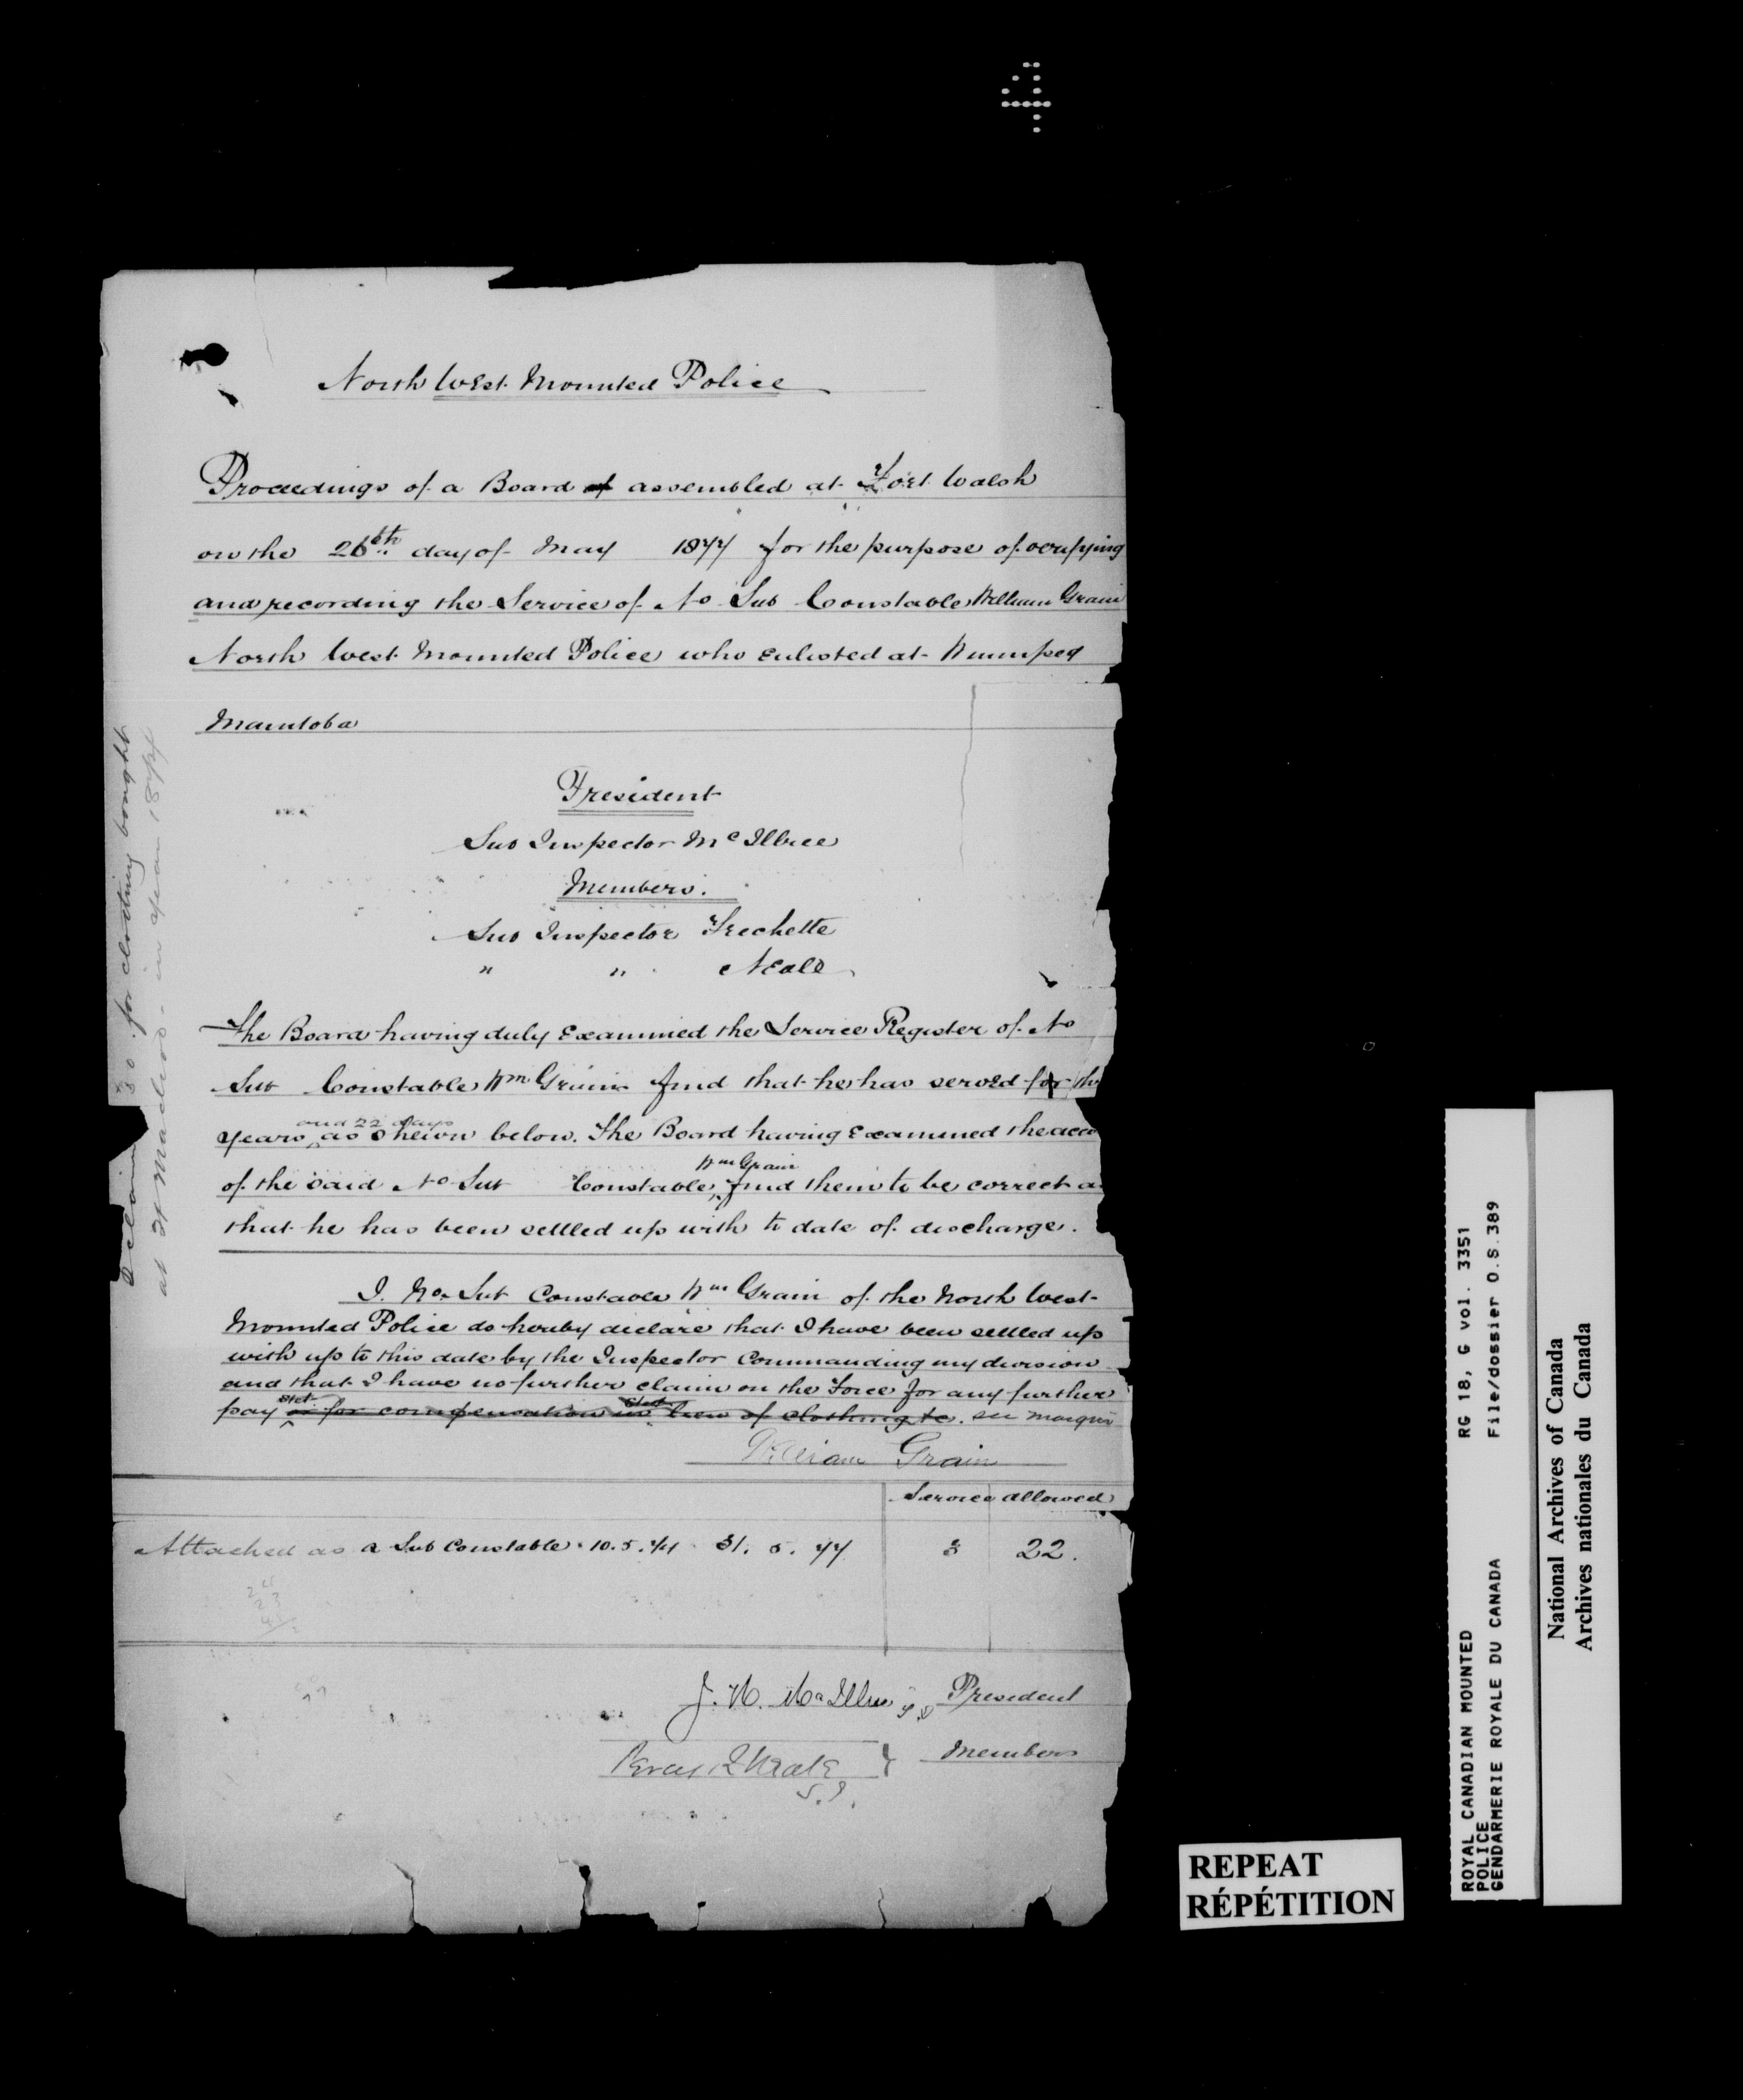 4
North West Mounted Police
Proceedings of a Board of assembled at Fort Walsh
on the 26th day of May 1877 for the purpose of verifying
and recording the Service of No Sub Constable William Grain
North West Mounted Police who Enlisted at Winnipeg
Manitoba
President
Sub Inspector McIllree
Members.
Sub Inspector Frechette
" " Neale
The Board having duly Examined the Service Register of No
Sub Constable Wm Grain find that he has served for thr
years and 22 days as Shewn below. The Board having Examined the acco
of the said No Sub Constable Wm Grain find them to be correct a
that he has been settled up with to date of discharge.
I. No. Sub Constable Wm Grain of the North West
Mounted Police do hereby declare that I have been settled up
with up to this date by the Inspector Commanding my division
and that I have no further claim on the Force for any further
pay stet or for compensation in lieu of clothing &c. see margin
William Grain
Service allowed
Attached as a Sub Constable 10.5.74 31. 5. 77 3 22.
J. H. McIllree S.I. President
Percy R Neale } Members
S.I.
I claim 30 for clothing bought
at Ft Macleod in year 187
REPEAT
RÉPÉTITION
ROYAL CANADIAN MOUNTED RG 18, G vol. 3351
POLICE
GENDARMERIE ROYALE DU CANADA File/dossier O.S.389
National Archives of Canada
Archives nationales du Canada